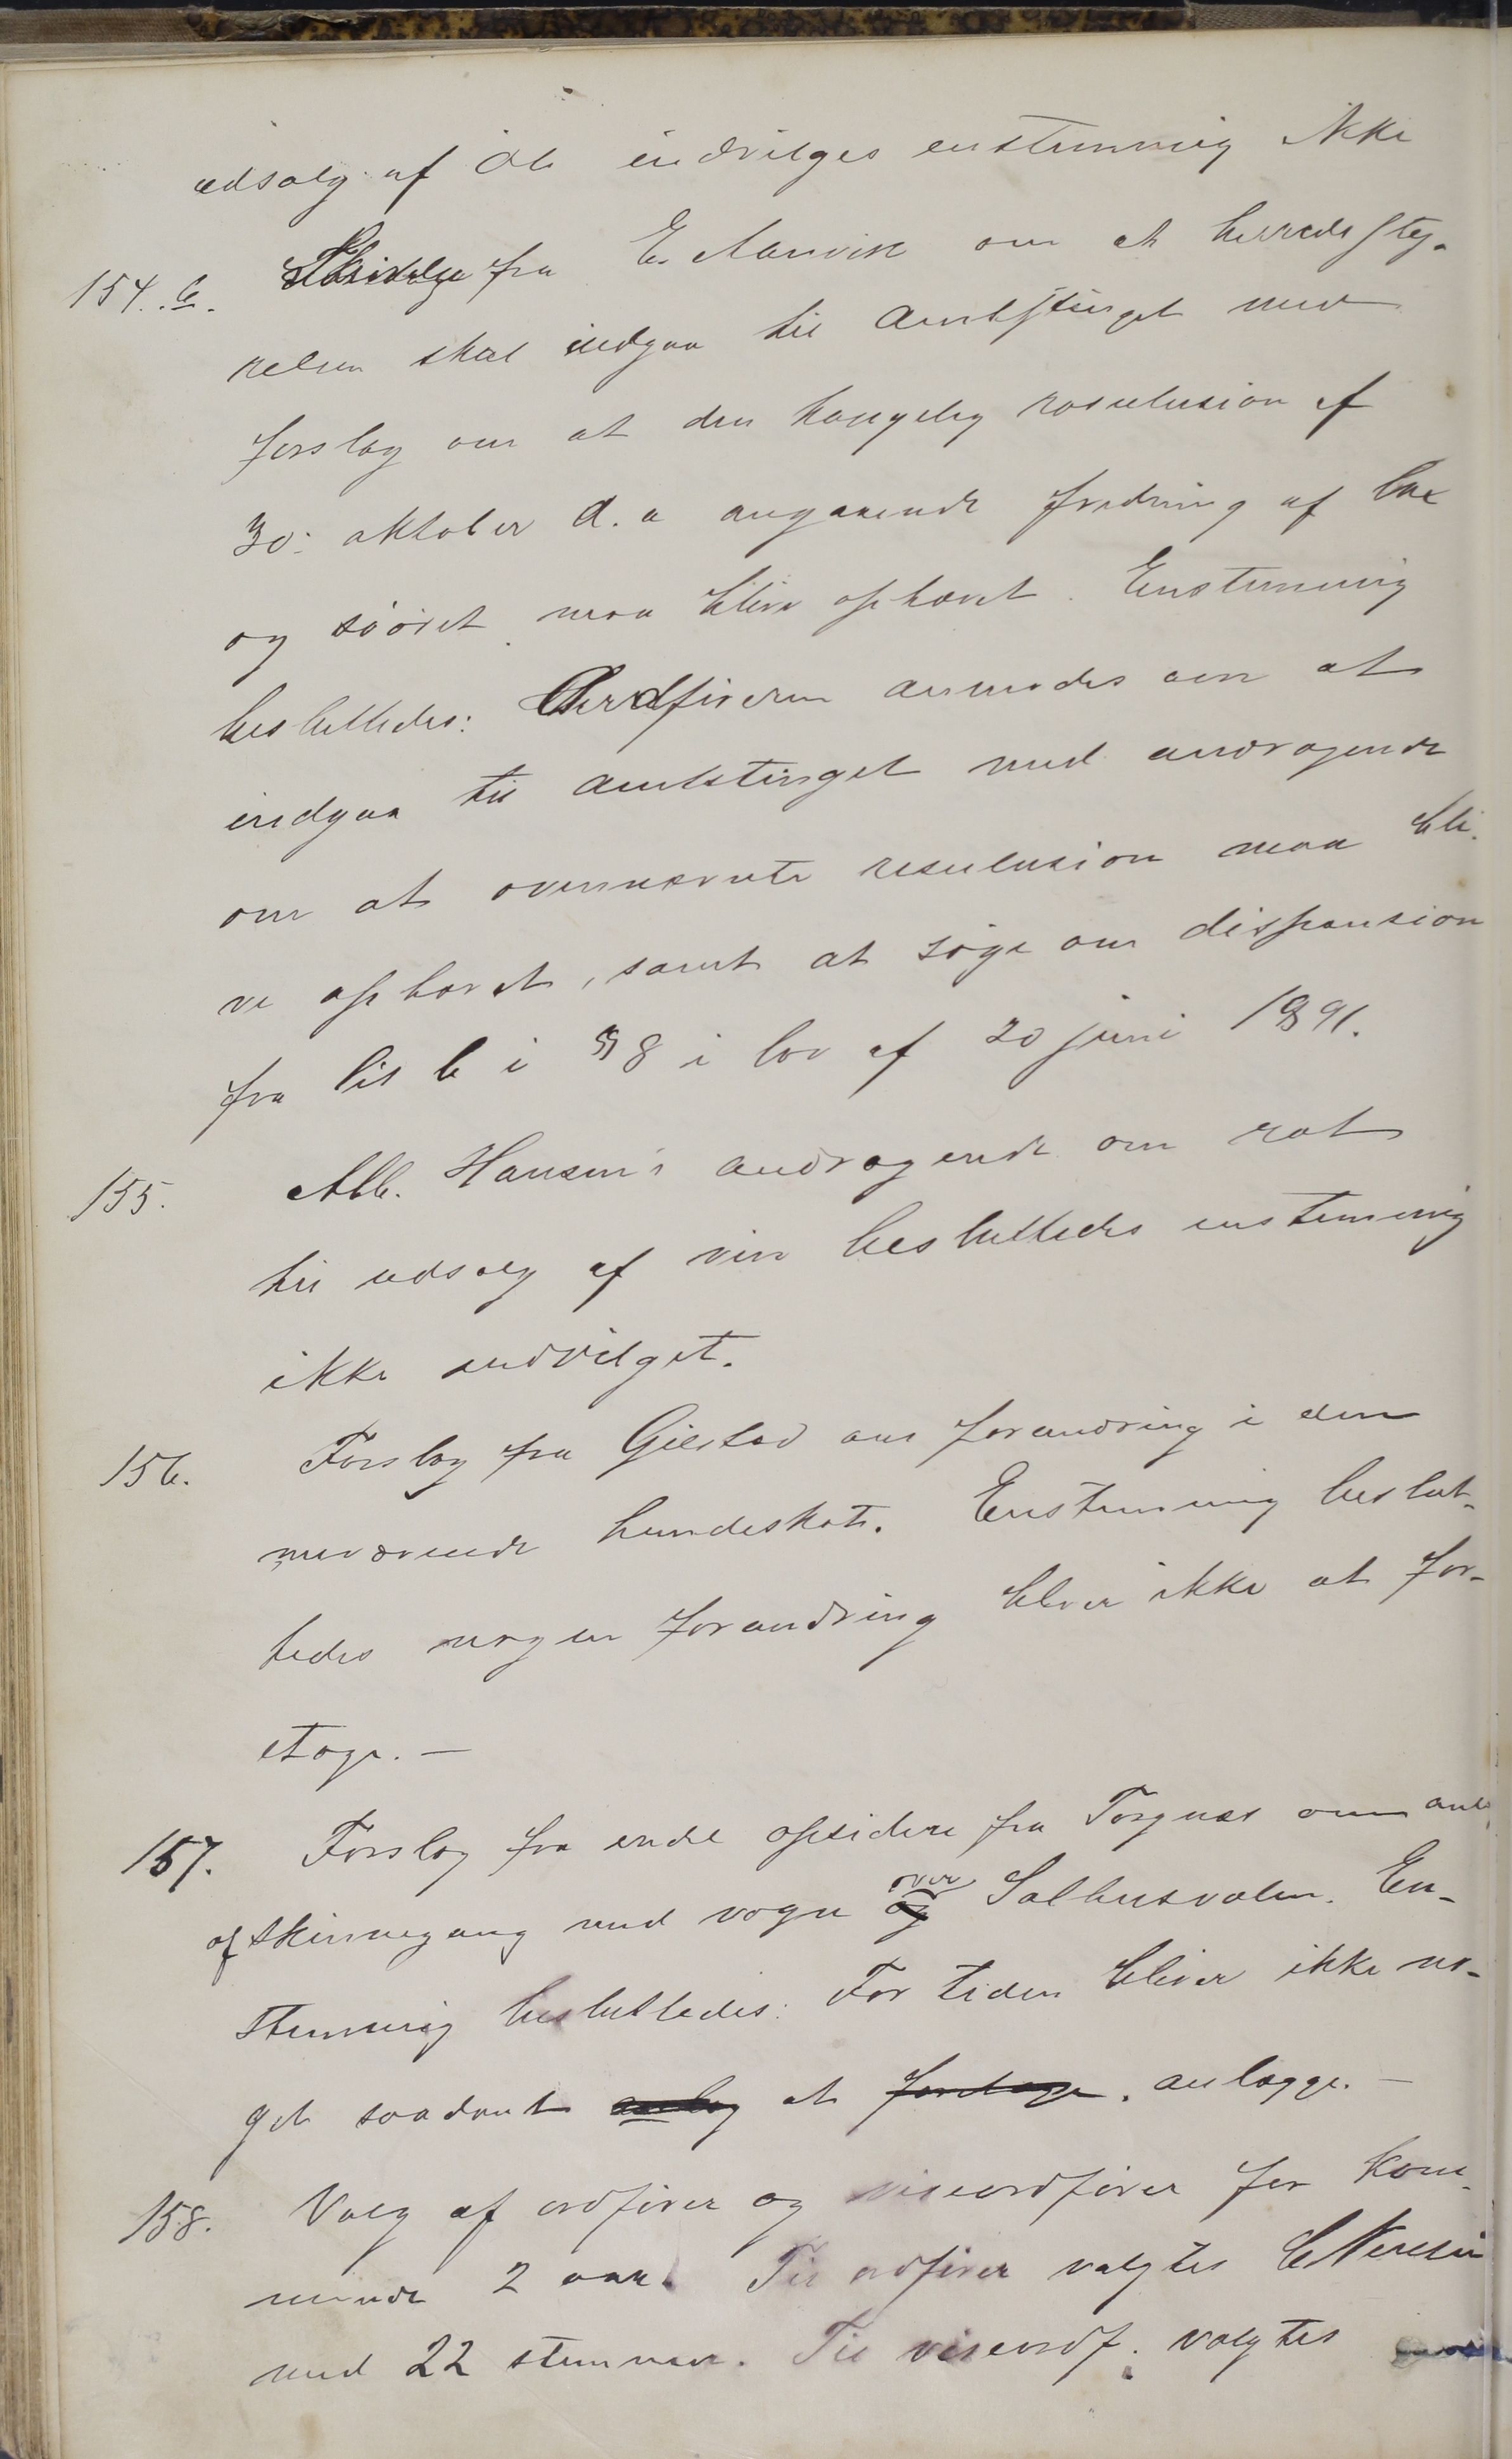 udsalg af öl indvilges enstemmig ikke
154. b. Skrivelse fra E. Aarvik om at herredsty-
relsen skal indgaa til Amtstinget med
forslag om at den kongelig resulusion af
30. oktober d. a angaaende fredning af lax
og söörret maa blive ophævet. Enstemmig
besluttedes: Ordföreren anmodes om at
indgaa til amtstinget med andragende
om at ovennævnte resulusion maa bli-
ve ophævet, samt at söge om dispensasion
fra lit b i § 8 i lov af 20 juni 1891.
155. Alb. Hansen's andragende om ret
til udsalg af vin besluttedes enstemmig
ikke indvilget.
156. Forslag fra Gilstad om forandring i den
nuværende hundeskat. Enstemmig beslut-
tedes nogen forandring bliver ikke at for-
etage. —
157. Forslag fra endel opsidere fra Torgnæs om anl.
af skinnegang med vogn over Salhusvalen. En-
stemmig besluttedes: For tiden bliver ikke no-
get saadant anlæg at foretage. anlægge. —
158. Valg af ordförer og viseordförer for kom-
mende 2 aar. Til ordförer valgtes
med 22 stemmer. Til viseordf. valgtes